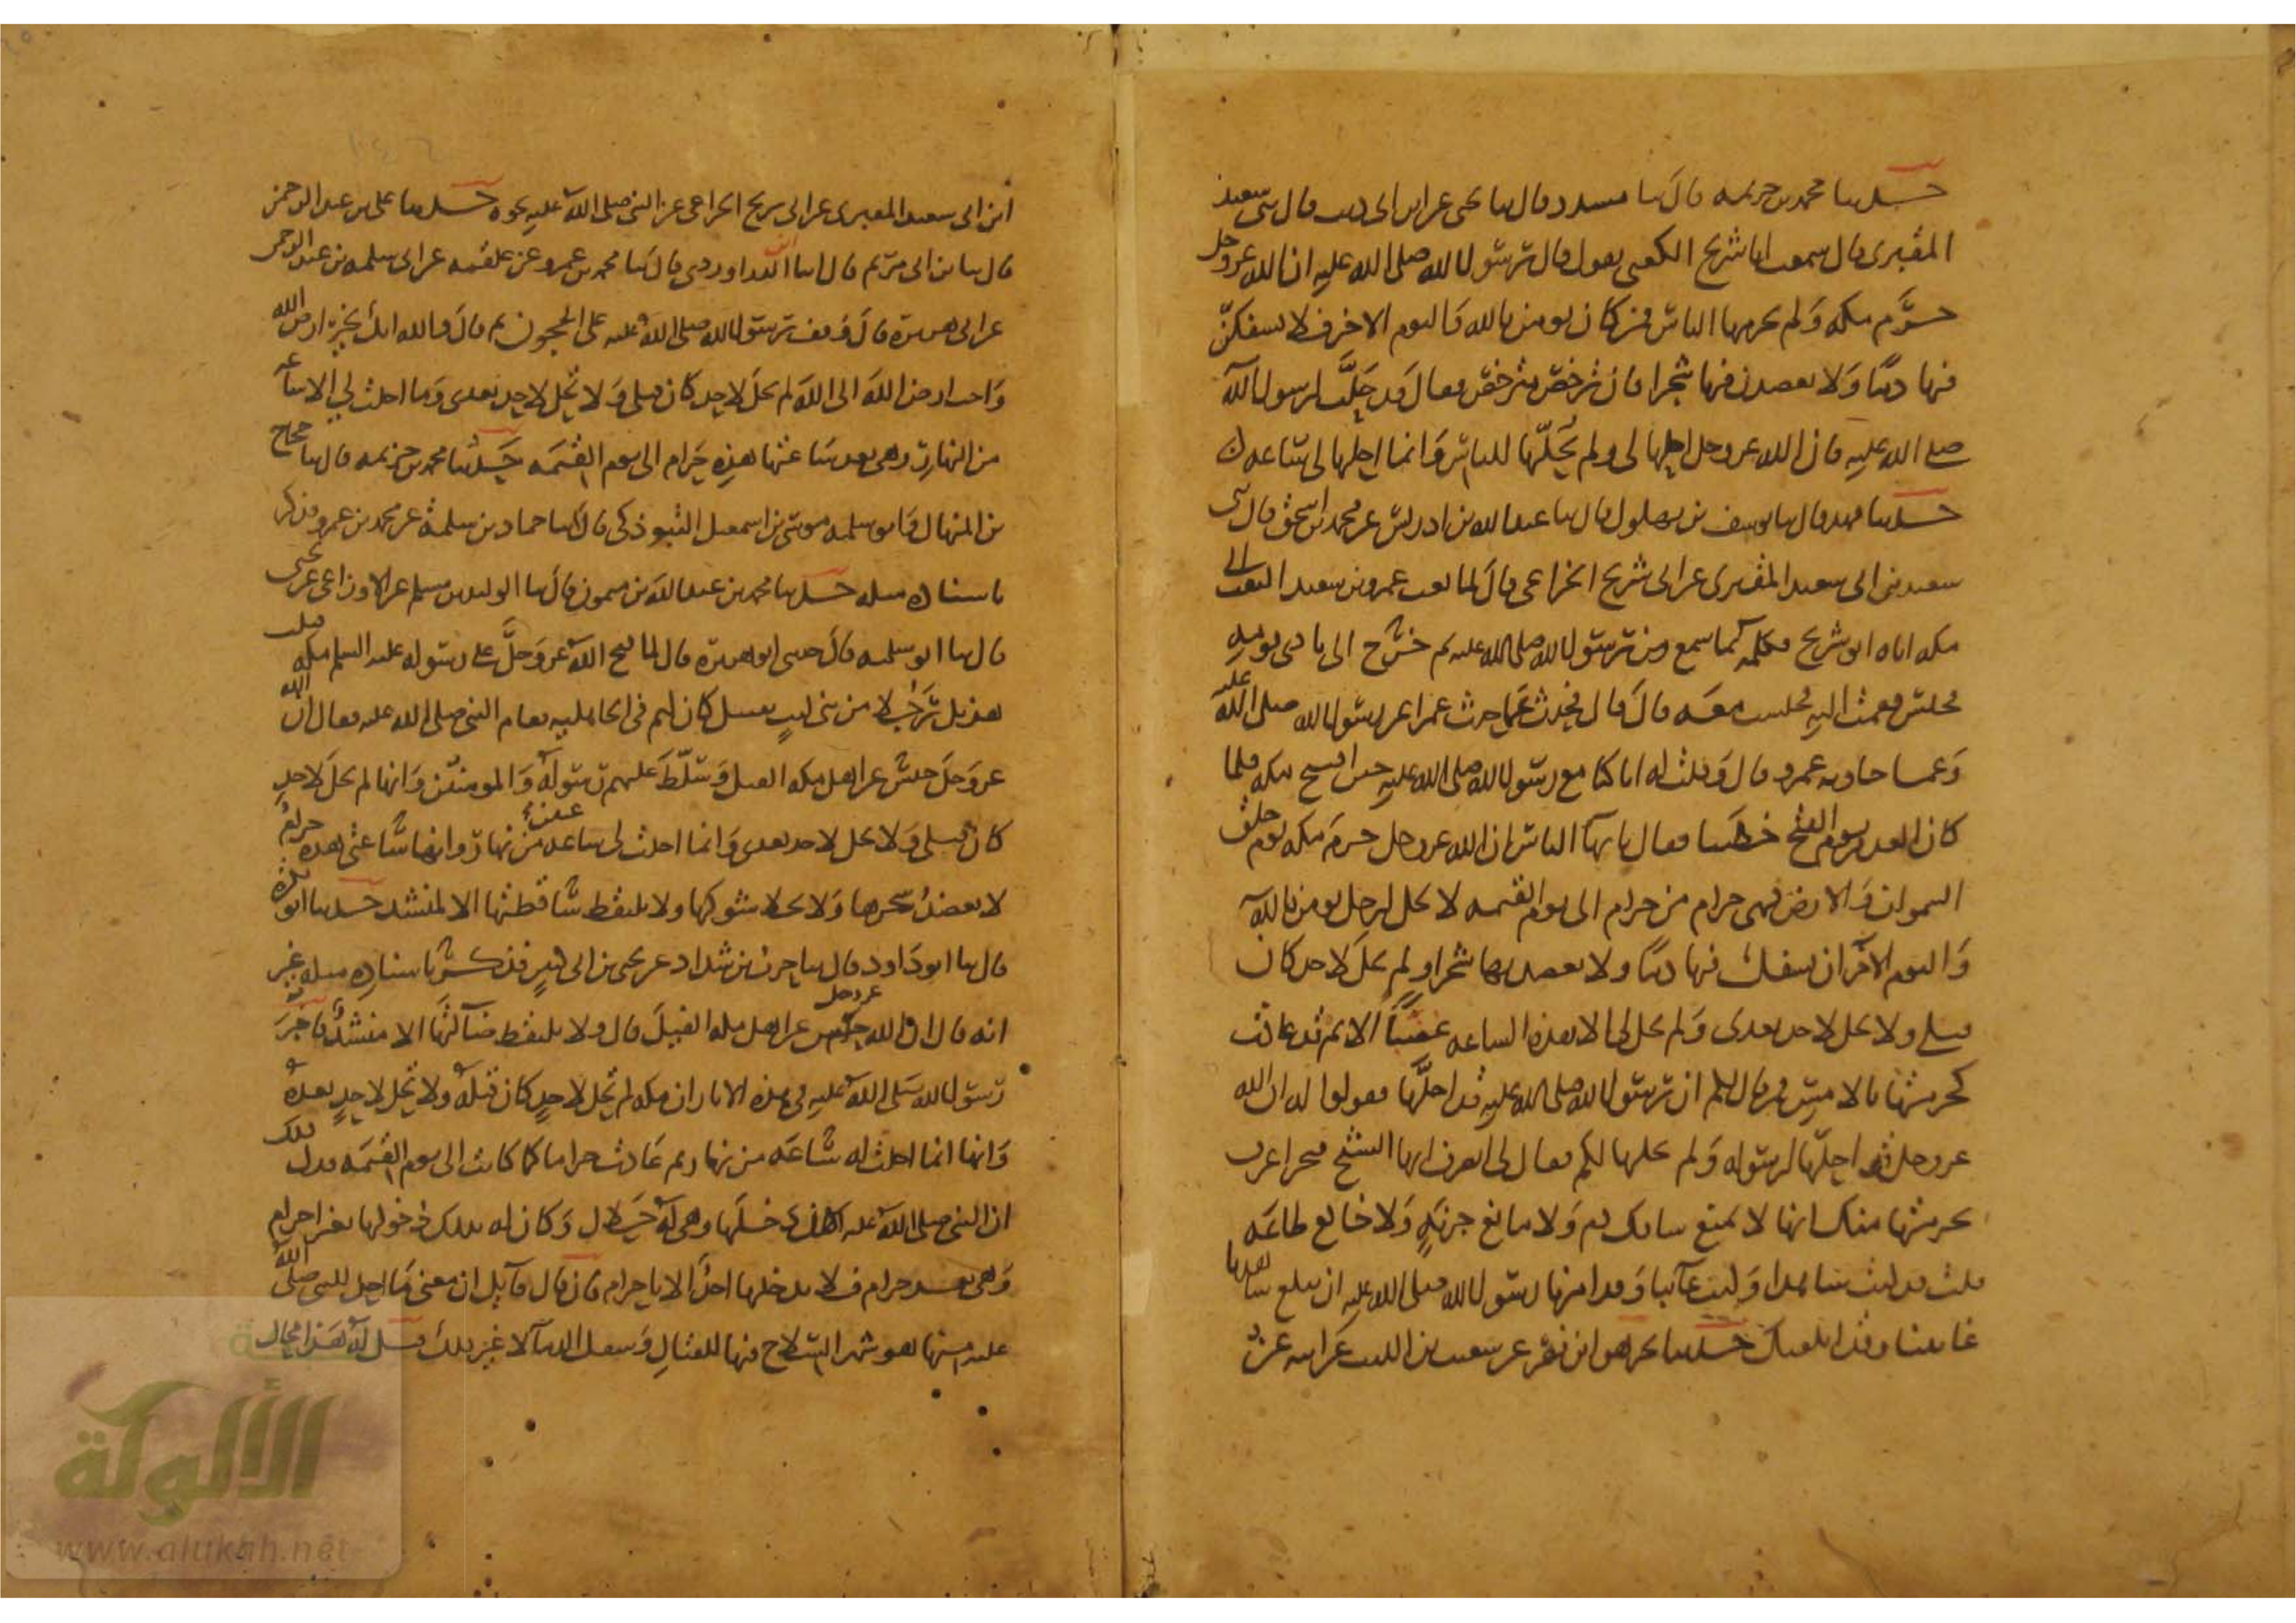 حدثنا محمد بن خزيمة قال ثنا مسدد قال ثنا يحيى عن ابن ابي ذيب قال ثنى سعيد
المقبرى قال سمعت ابا شريح الكعبى يقول قال رسول الله صلى الله عليه ان الله عز وجل
حرَّم مكه وَلم يحرمها الناس فمن كان يومن بالله وَاليوم الاخر فلا يسفكنّ
فيها دمًا وَلا يعضدن فيها شجرا فان ترخص مترخص فقال قد حَلَّت لرسول الله
صلى الله عليه فان الله عز وجل احلها لى ولم يُحِلّها للناس وَانما احلها لى ساعه
حدثنا فهد قال ثنا يوسف بن بهلول قال ثنا عبد الله بن ادريس عن محمد بن اسحق قال ثنى
سعيد بن ابى سعيد المقبرى عن ابى شريح الخزاعى قال لما بعث عمرو بن سعيد البعث الى
مكه اتاه ابو شريح فكلمه بما سمع من رسول الله صلى الله عليه ثم خرج الى نادى قومه
فجلس فقمت اليه فجلست معه قال قال فحدث عما حدث عمرا عن رسول الله صلى الله عليه
وَعما جاوبه عمرو قال وَقلت له انا كنا مع رسول الله صلى الله عليه حين افتتح مكه فلما
كان الغد من يوم الفتح خطبنا فقال يا يها الناس ان الله عز وجل حرم مكه يوم خلق
السموات وَالارض فهى حرام من حرام الى يوم القيمه لا يحل لرجل يومن بالله
وَاليوم الآخر ان يسفك فيها دمًا ولا يعضد بها شجرا ولم يحل لاحد كان
قبلى ولا يحل لاحد بعدى وَلم يحل لى الا هذه الساعه غضبًا الا ثم قد عادت
كحرمتها بالامس فمن قال لكم ان رسول الله صلى الله عليه قد احلّها فقولوا له ان الله
عز وجل قد احلّها لرسوله وَلم يحلها لكم فقال لى انصرف ايها الشيخ فنحن اعرف
بحرمتها منك انها لا تمنع سافك دم وَلا مانع جزية وَلا خالع طاعه
قلت قد كنت شاهدا وَكنت غائبا وَقد امرنا رسول الله صلى الله عليه ان يبلغ شاهدنا
غائبنا وقد ابلغتك حدثنا بحر هو ابن نصر عن شعيب بن الليث عن ابيه عن
ابن ابى سعيد المقبرى عن ابى شريح الخزاعى عن النبى صلى الله عليه نحوه حدثنا على بن عبد الرحمن
قال ثنا بن ابى مريم قال انا الدراوردى قال ثنا محمد بن عمرو عن علقمه عن ابى سلمه بن عبد الرحمن
عن ابى هريرة قال وَقف رسول الله صلى الله عليه على الحجون ثم قال والله انك لخير ارض الله
وَاحب ارض الله الى الله لم تحل لاحد كان قبلى وَلا تحل لاحد بعدى وَما احلت لى الا ساعه
من النهار وهى بعد ساعتها هذه حَرام الى يوم القيمه حدثنا محمد بن خزيمه قال ثنا حجاج
بن المنهال وَابو سلمه موسى بن اسمعيل التبوذكى قال ثنا حماد بن سلمة عن محمد بن عمرو فذكر
باسناده مثله حدثنا محمد بن عبد الله بن ميمون قال ثنا الوليد بن مسلم عن الاوزاعى عن يحيى
قال ثنا ابو سلمه قال حدثنى ابو هريرة قال لما فتح الله عز وَجل على رسوله عليه السلم مكه قتلت
هذيل رَجُلا من بنى ليث بقتيل كان لهم فى الجاهليه فقام النبى صلى الله عليه فقال ان الله
عز وَجل حبس عن اهل مكه الفيل وَسلّط عليهم رسوله وَالمومنين وَانها لم تحل لاحد
كان قبلى وَلا تحل لاحد بعدى وَانما احلت لى ساعه من نهار وانها ساعتى هذه حرام
لا يعضد شجرها وَلا يختلا شوكها ولا يلتقط ساقطتها الا لمنشد حدثنا ابو بكرة
قال ثنا ابو دَاود قال ثنا حرب بن شداد عن يحيى بن ابى كثير فذكر باسناده مثله غير
انه قال ان الله عز وجل حبس عن اهل مكه الفيل قال ولا يلتقط ضآلتها الا منشد فاخبر
رسول الله صلى الله عليه فى هذه الاثار ان مكه لم تحل لاحد كان قبله ولا تحل لاحد بعده
وَانها انما احلت له ساعَه من نهار ثم عَادت حراما كما كانت الى يوم القيمَه فدل ذلك
ان النبى صلى الله عليه كان دخلها وهى له حَلال وَكان له بذلك دخولها بغير احرام
وَهى بعد حرام فلا يدخلها احد الا باحرام فان قال قآيل ان معنى مَا احل للنبى صلى الله
عليه منها هو شهر السلاح فيها للقتال وَسفك الدمآ لا غير ذلك قيل له هَذا محال